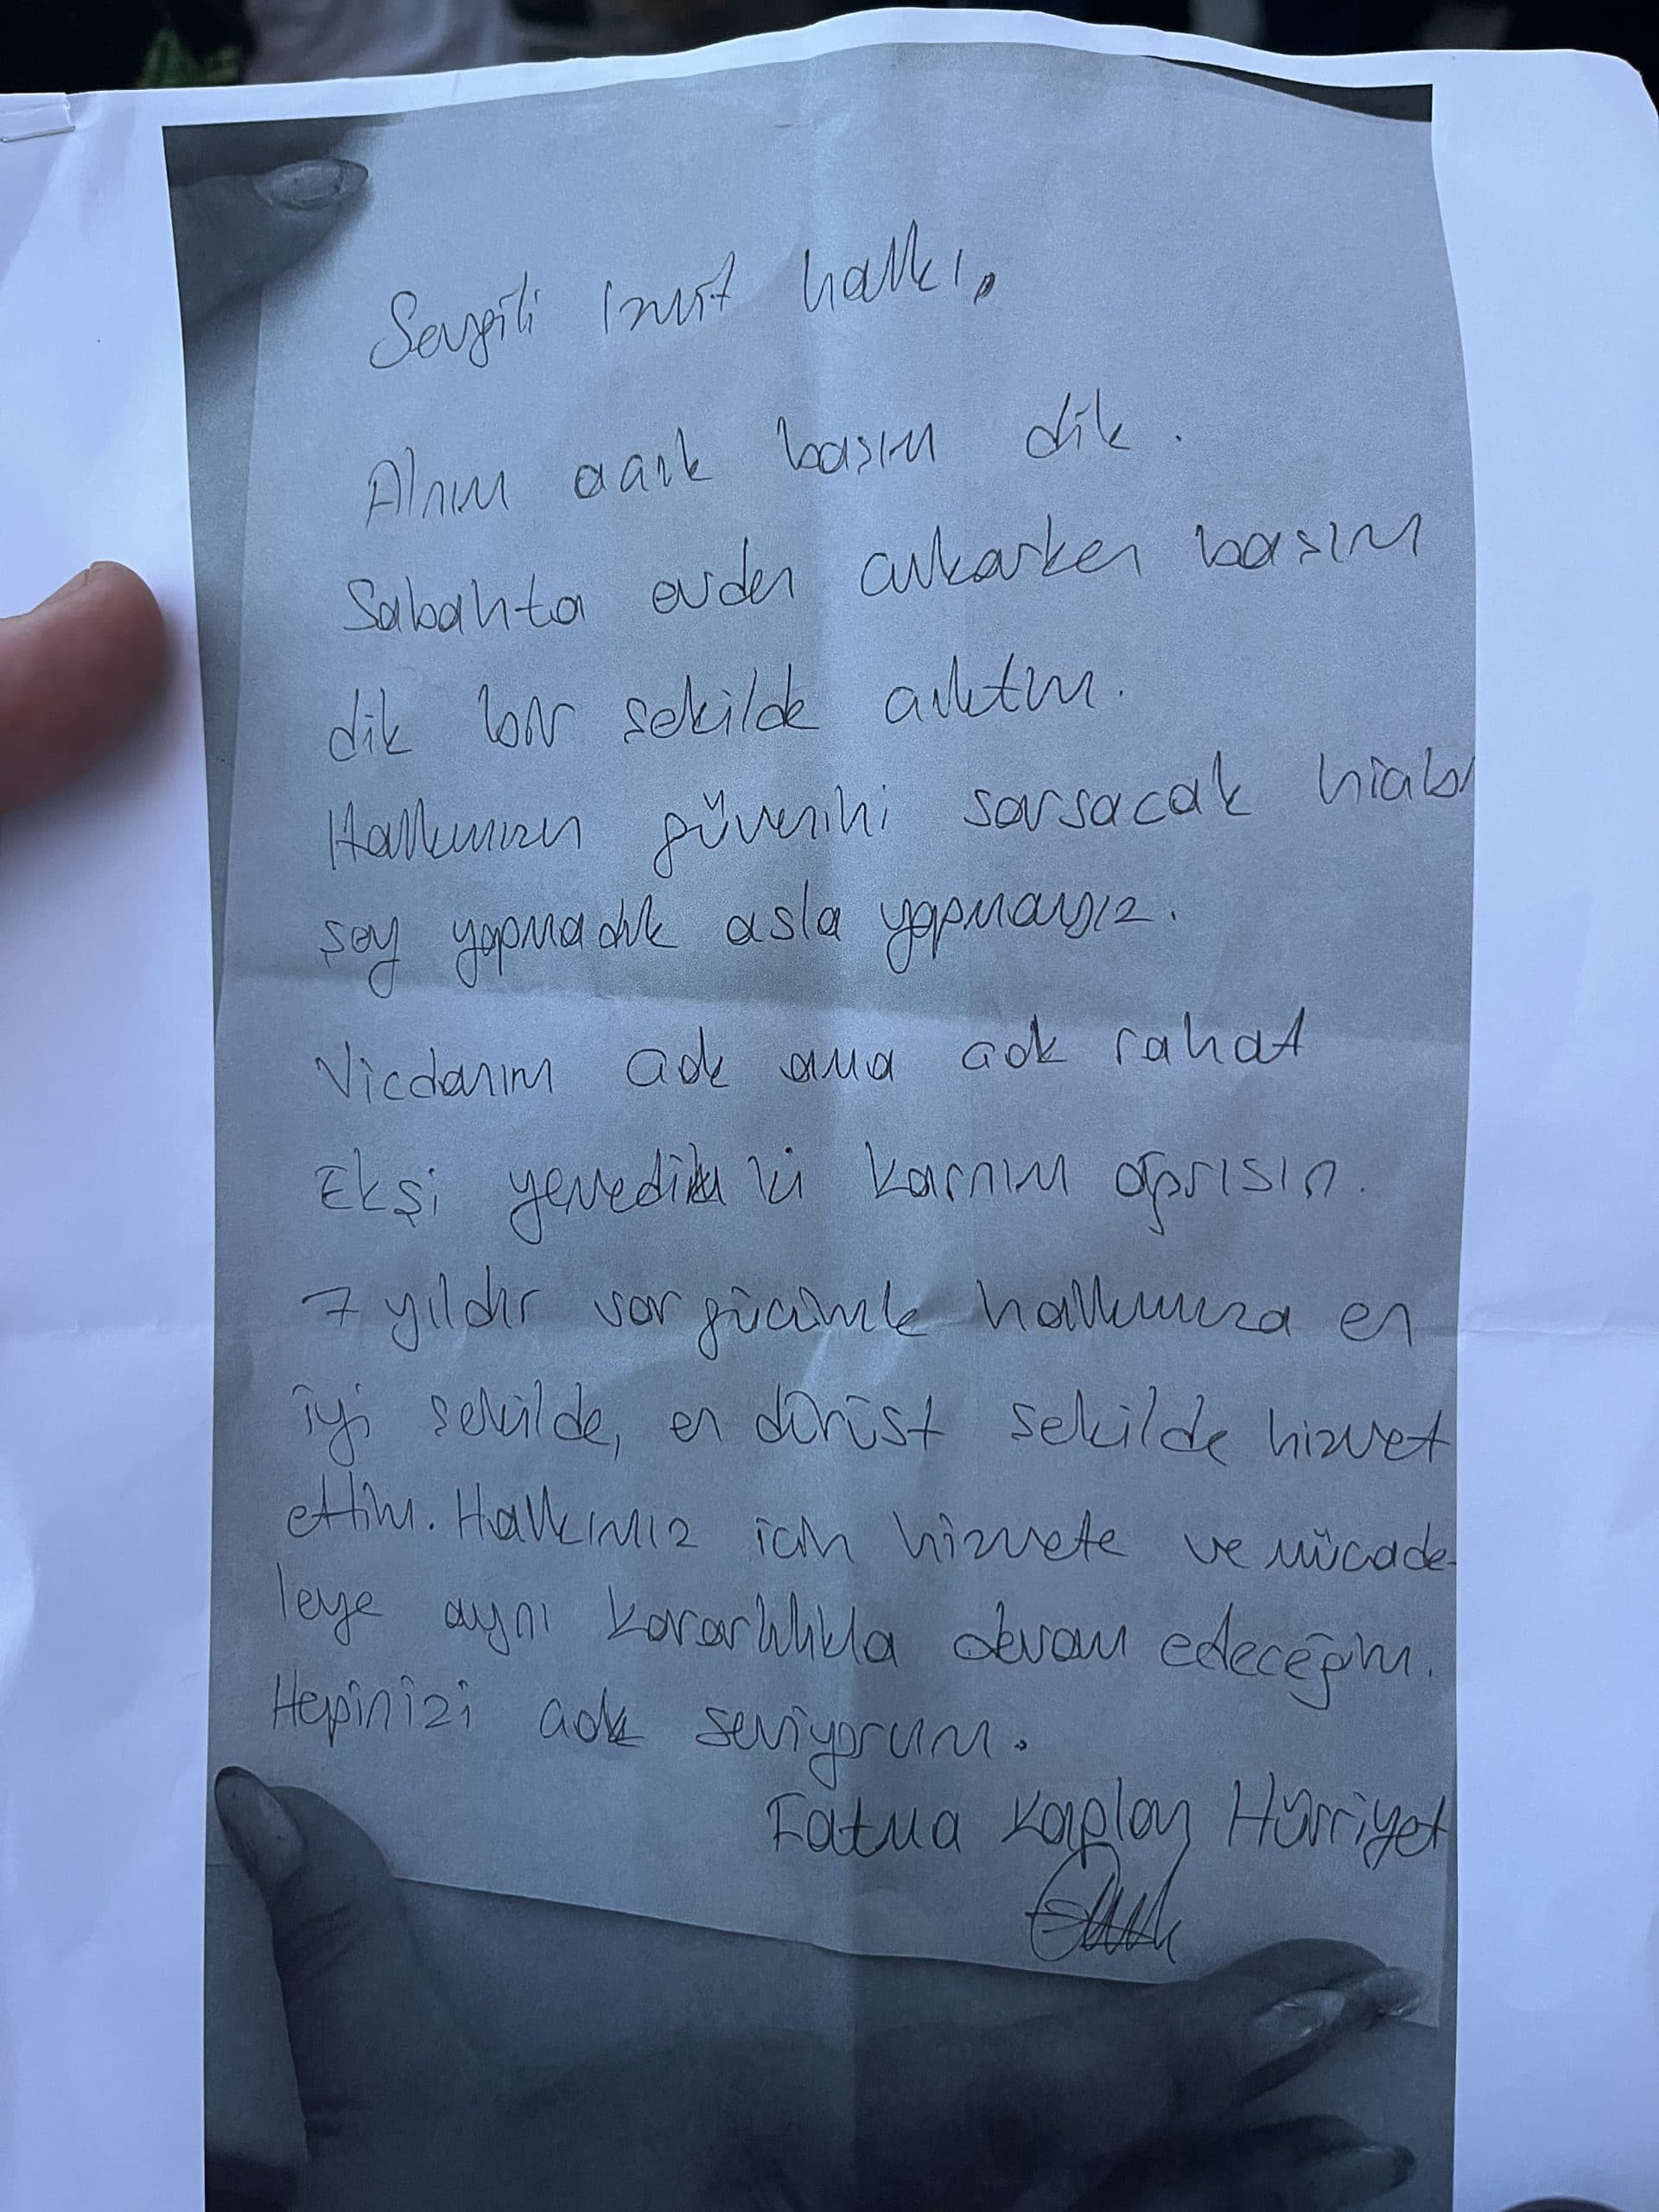 Sevgili Izmit halkı,
Alnım acık basım dik.
Sabahta evden cıkarken basım
dik bir sekilde cıktım.
Halkımızın güvenini sarsacak hicbir
şey yapmadık asla yapmayız.
Vicdanım cok ama cok rahat
Ekşi yemedim ki karnım ağrısın.
7 yıldır var gücümle halkımıza en
iyi sekilde, en dürüst sekilde hizmet
ettim. Halkımız icin hizmete ve mücade-
leye aynı kararlılıkla devam edeceğim.
Hepinizi cok seviyorum.
Fatma Kaplan Hürriyet